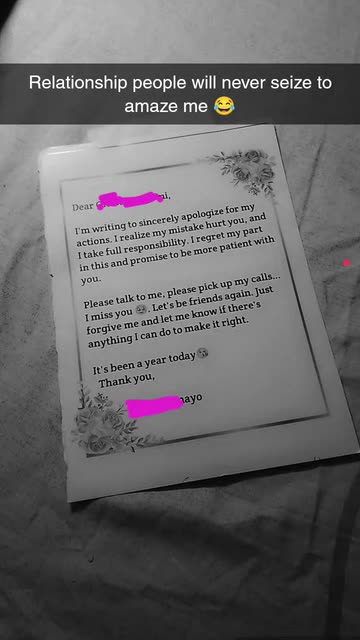 Relationship people will never seize to
amaze me 😂
Dear
I'm writing to sincerely apologize for my
actions. I realize my mistake hurt you, and
I take full responsibility. I regret my part
in this and promise to be more patient with
you.
Please talk to me, please pick up my calls...
I miss you 🥺. Let's be friends again. Just
forgive me and let me know if there's
anything I can do to make it right.
It's been a year today😘
Thank you,